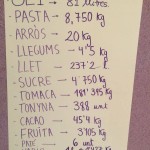 OLI - 82 litres
- PASTA - 8,750 kg
- ARRÒS - 20 kg
- LLEGUMS - 4'5 kg
- LLET - 237'2 l
- SUCRE - 4'750 kg
- TOMACA - 181'395 kg
- TONYNA - 388 unt
- CACAO - 45'4 kg
- FRUITA - 3'105 kg
- 6 unt